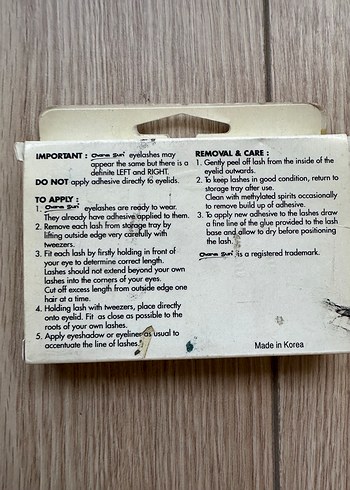 IMPORTANT : eyelashes may
appear the same but there is a
definite LEFT and RIGHT.
DO NOT apply adhesive directly to eyelids.
TO APPLY :
1. eyelashes are ready to wear.
They already have adhesive applied to them.
2. Remove each lash from storage tray by
lifting outside edge very carefully with
tweezers.
3. Fit each lash by firstly holding in front of
your eye to determine correct length.
Lashes should not extend beyond your own
lashes into the corners of your eyes.
Cut off excess length from outside edge one
hair at a time.
4. Holding lash with tweezers, place directly
onto eyelid. Fit as close as possible to the
roots of your own lashes.
5. Apply eyeshadow or eyeliner as usual to
accentuate the line of lashes.
REMOVAL & CARE :
1. Gently peel off lash from the inside of the
eyelid outwards.
2. To keep lashes in good condition, return to
storage tray after use.
Clean with methylated spirits occasionally
to remove build up of adhesive.
3. To apply new adhesive to the lashes draw
a fine line of the glue provided to the lash
base and allow to dry before positioning
the lash.
is a registered trademark.
Made in Korea